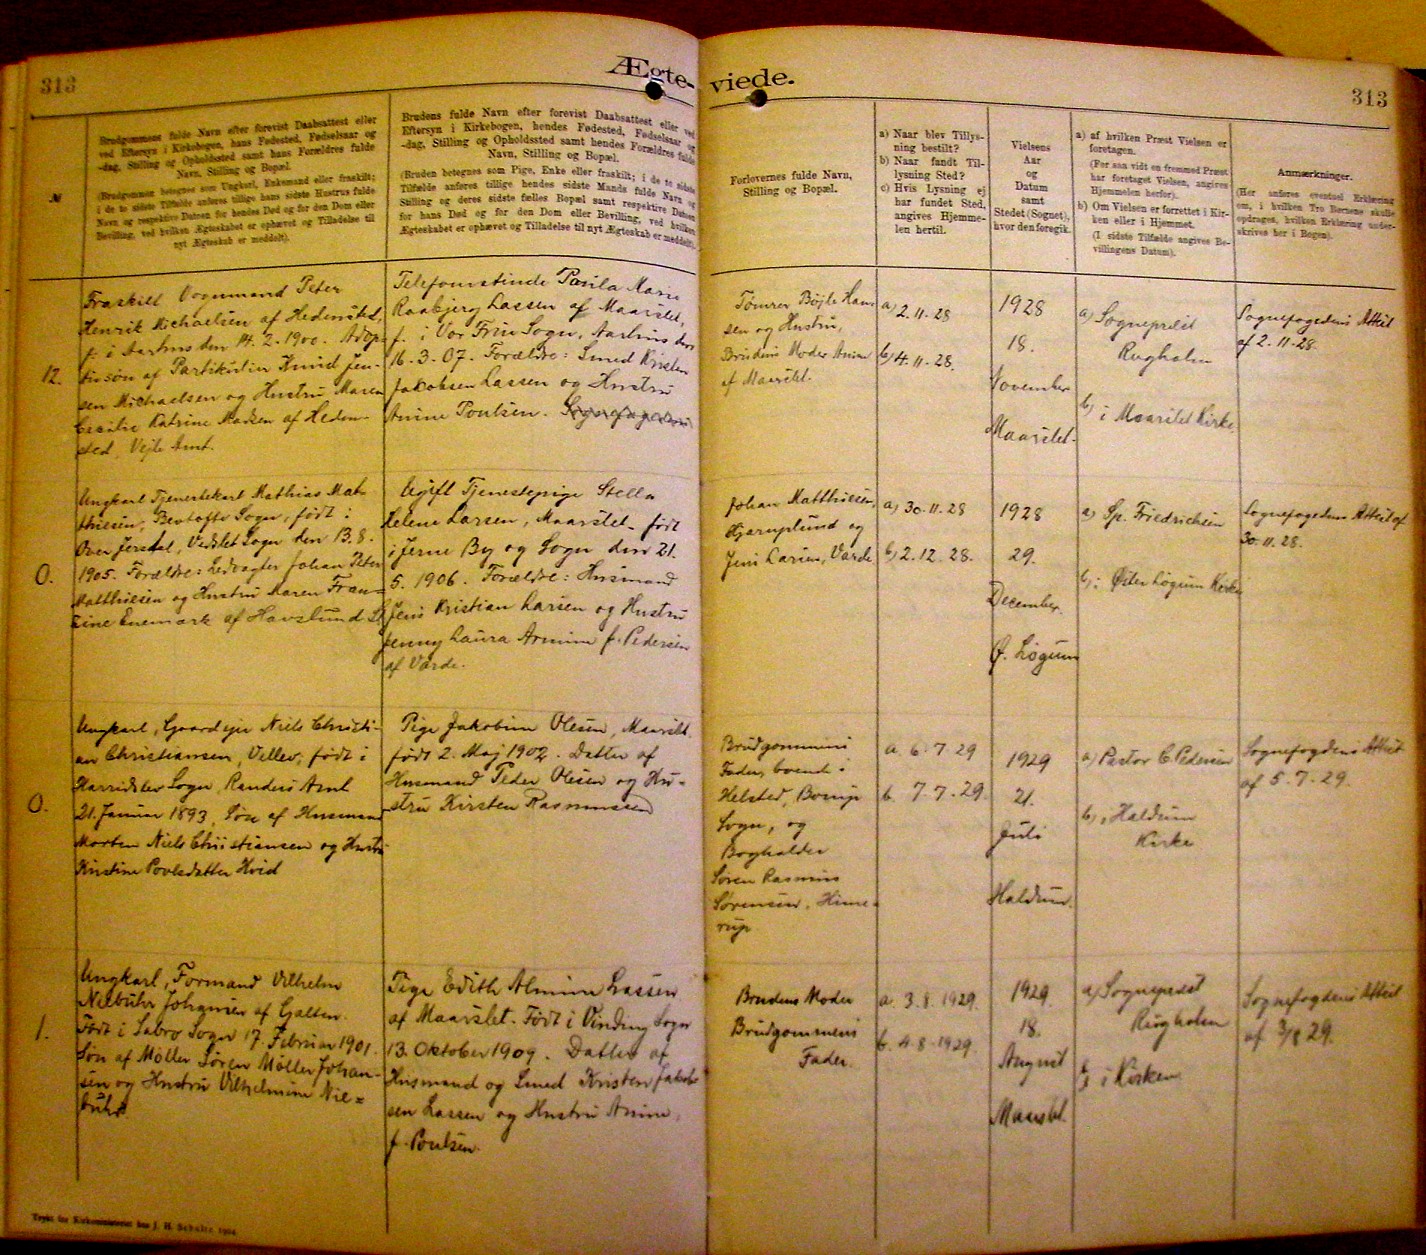 313
Ægte-
viede.
313
№
Brudgommens fulde Navn efter forevist Daabsattest eller
ved Eftersyn i Kirkebogen, hans Fødested, Fødselsaar og
-dag, Stilling og Opholdssted samt hans Forældres fulde
Navn, Stilling og Bopæl.
(Brudgommen betegnes som Ungkarl, Enkemand eller fraskilt;
i de to sidste Tilfælde anføres tillige hans sidste Hustrus fulde
Navn og respektive Datoen for hendes Død og for den Dom eller
Bevilling, ved hvilken Ægteskabet er ophævet og Tilladelse til
nyt Ægteskab er meddelt).
Brudens fulde Navn efter forevist Daabsattest eller ved
Eftersyn i Kirkebogen, hendes Fødested, Fødselsaar og
-dag, Stilling og Opholdssted samt hendes Forældres fulde
Navn, Stilling og Bopæl.
(Bruden betegnes som Pige, Enke eller fraskilt; i de to sidste
Tilfælde anføres tillige hendes sidste Mands fulde Navn og
Stilling og deres sidste fælles Bopæl samt respektive Datoen
for hans Død og for den Dom eller Bevilling, ved hvilken
Ægteskabet er ophævet og Tilladelse til nyt Ægteskab er meddelt).
Forlovernes fulde Navn,
Stilling og Bopæl.
a) Naar blev Tillys-
ning bestilt?
b) Naar fandt Til-
lysning Sted?
c) Hvis Lysning ej
har fundet Sted,
angives Hjemme-
len hertil.
Vielsens
Aar
og
Datum
samt
Stedet (Sognet),
hvor den foregik.
a) af hvilken Præst Vielsen er
foretagen.
(For saa vidt en fremmed Præst
har foretaget Vielsen, angives
Hjemmelen herfor).
b) Om Vielsen er forrettet i Kir-
ken eller i Hjemmet.
(I sidste Tilfælde angives Be-
villingens Datum).
Anmærkninger.
(Her anføres eventuel Erklæring
om, i hvilken Tro Børnene skulle
opdrages, hvilken Erklæring under-
skrives her i Bogen).
12.
Fraskilt Vognmand Peter
Henrik Michaelsen af Hedensted,
f. i Aarhus den 14. 2. 1900. Adop-
tivsøn af Partikulier Knud Jen-
sen Michaelsen og Hustru Maren
Cecilie Katrine Madsen af Heden-
sted, Vejle Amt.
Telefonistinde Paula Marie
Raabjerg Lassen af Maarslet,
f. i Vor Frue Sogn, Aarhus den
16.-3.-07. Forældre: Smed Kristen
Jakobsen Lassen og Hustru
Anine Poulsen. Sognefogedens
Tømrer Bøjle Han-
sen og Hustru,
Brudens Moder Anine
af Maarslet.
a) 2.11.28
b) 4.11.28.
1928
18.
November
Maarslet.
a) Sognepræst
Rugholm
b) i Maarslet Kirke
Sognefogedens Attest
af 2.11.28.
0.
Ungkarl Tjenestekarl Mathias Mat-
thiesen, Bevtofte Sogn, født i
Over Jersdal, Vedsted Sogn den 13.8.
1905. Forældre: Ledvogter Johan Peter
Matthiesen og Hustru Maren Fran-
sine Enemark af Havslund
Ugift Tjenestepige Stella
Helene Larsen, Maarslet, født
i Jerne By og Sogn den 21.
5. 1906. Forældre: Husmand
Jens Kristian Larsen og Hustru
Jenny Laura Armine f. Pedersen
af Varde.
Johan Matthiesen,
Hjarnplund og
Jens Larsen, Varde
a) 30.11.28
b) 2.12.28.
1928
29.
December
Ø. Løgum
a) Sp. Friedrichsen
b) i Øster Løgum Kirke
Sognefogedens Attest af
30.11.28.
0.
Ungkarl, Gaardejer Niels Christi-
an Christiansen, Vellev, født i
Harridslev Sogn, Randers Amt
21. Januar 1893, Søn af Husmand
Morten Niels Christiansen og Hustru
Kristine Povlsdatter Hvid
Pige Jakobine Olesen, Maarslet
født 2. Maj 1902. Datter af
Husmand Peder Olesen og Hu-
stru Kirsten Rasmussen
Brudgommens
Fader, boende i
Helsted, Borup
Sogn, og
Bogholder
Søren Rasmus
Sørensen, Hinne-
rup.
a. 6.7.29
b. 7.7.29.
1929
21.
Juli
Haldum.
a) Pastor C. Pedersen
b) i Haldum
Kirke
Sognefogdens Attest
af 5.7.29.
1.
Ungkarl, Formand Vilhelm
Niebuhr Johansen af Galten.
Født i Sabro Sogn 17. Februar 1901.
Søn af Møller Søren Møller Johan-
sen og Hustru Vilhelmine Nie-
buhr
Pige Edith Almine Lassen
af Maarslet. Født i Vinding Sogn
13. Oktober 1909. Datter af
Husmand og Smed Kristen Jakob-
sen Lassen og Hustru Anine,
f. Poulsen.
Brudens Moder
Brudgommens
Fader.
a. 3.8.1929.
b. 4.8.1929.
1929.
18.
August
Maarslet.
a) Sognepræst
Rugholm
b) i Kirken
Sognefogdens Attest
af 3/8 29.
Trykt for Kirkeministeriet hos J. H. Schultz.